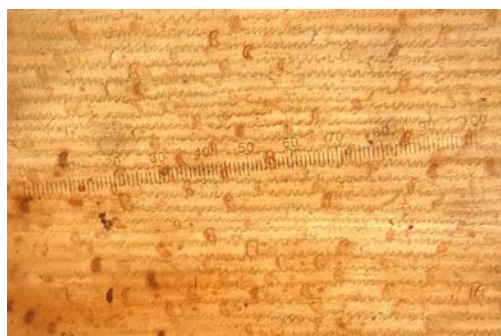 0 10 20 30 40 50 60 70 80 90 100